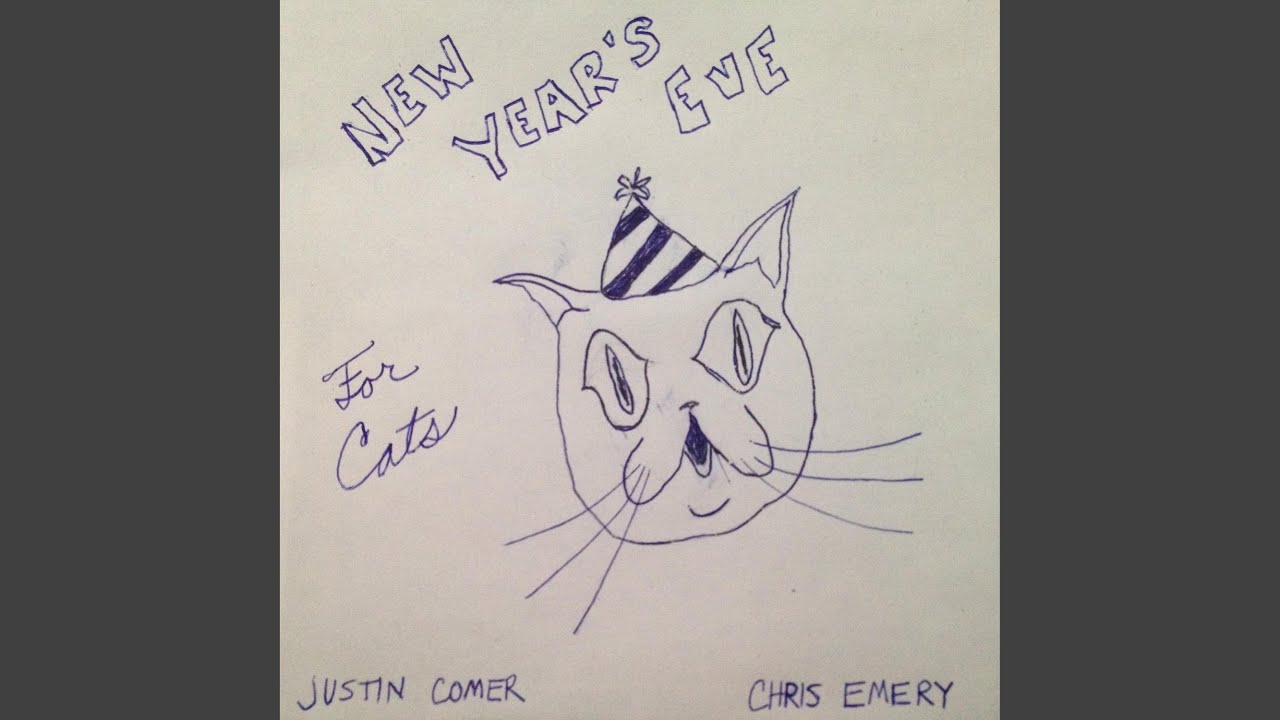 NEW YEAR'S EVE
For
Cats
JUSTIN COMER CHRIS EMERY